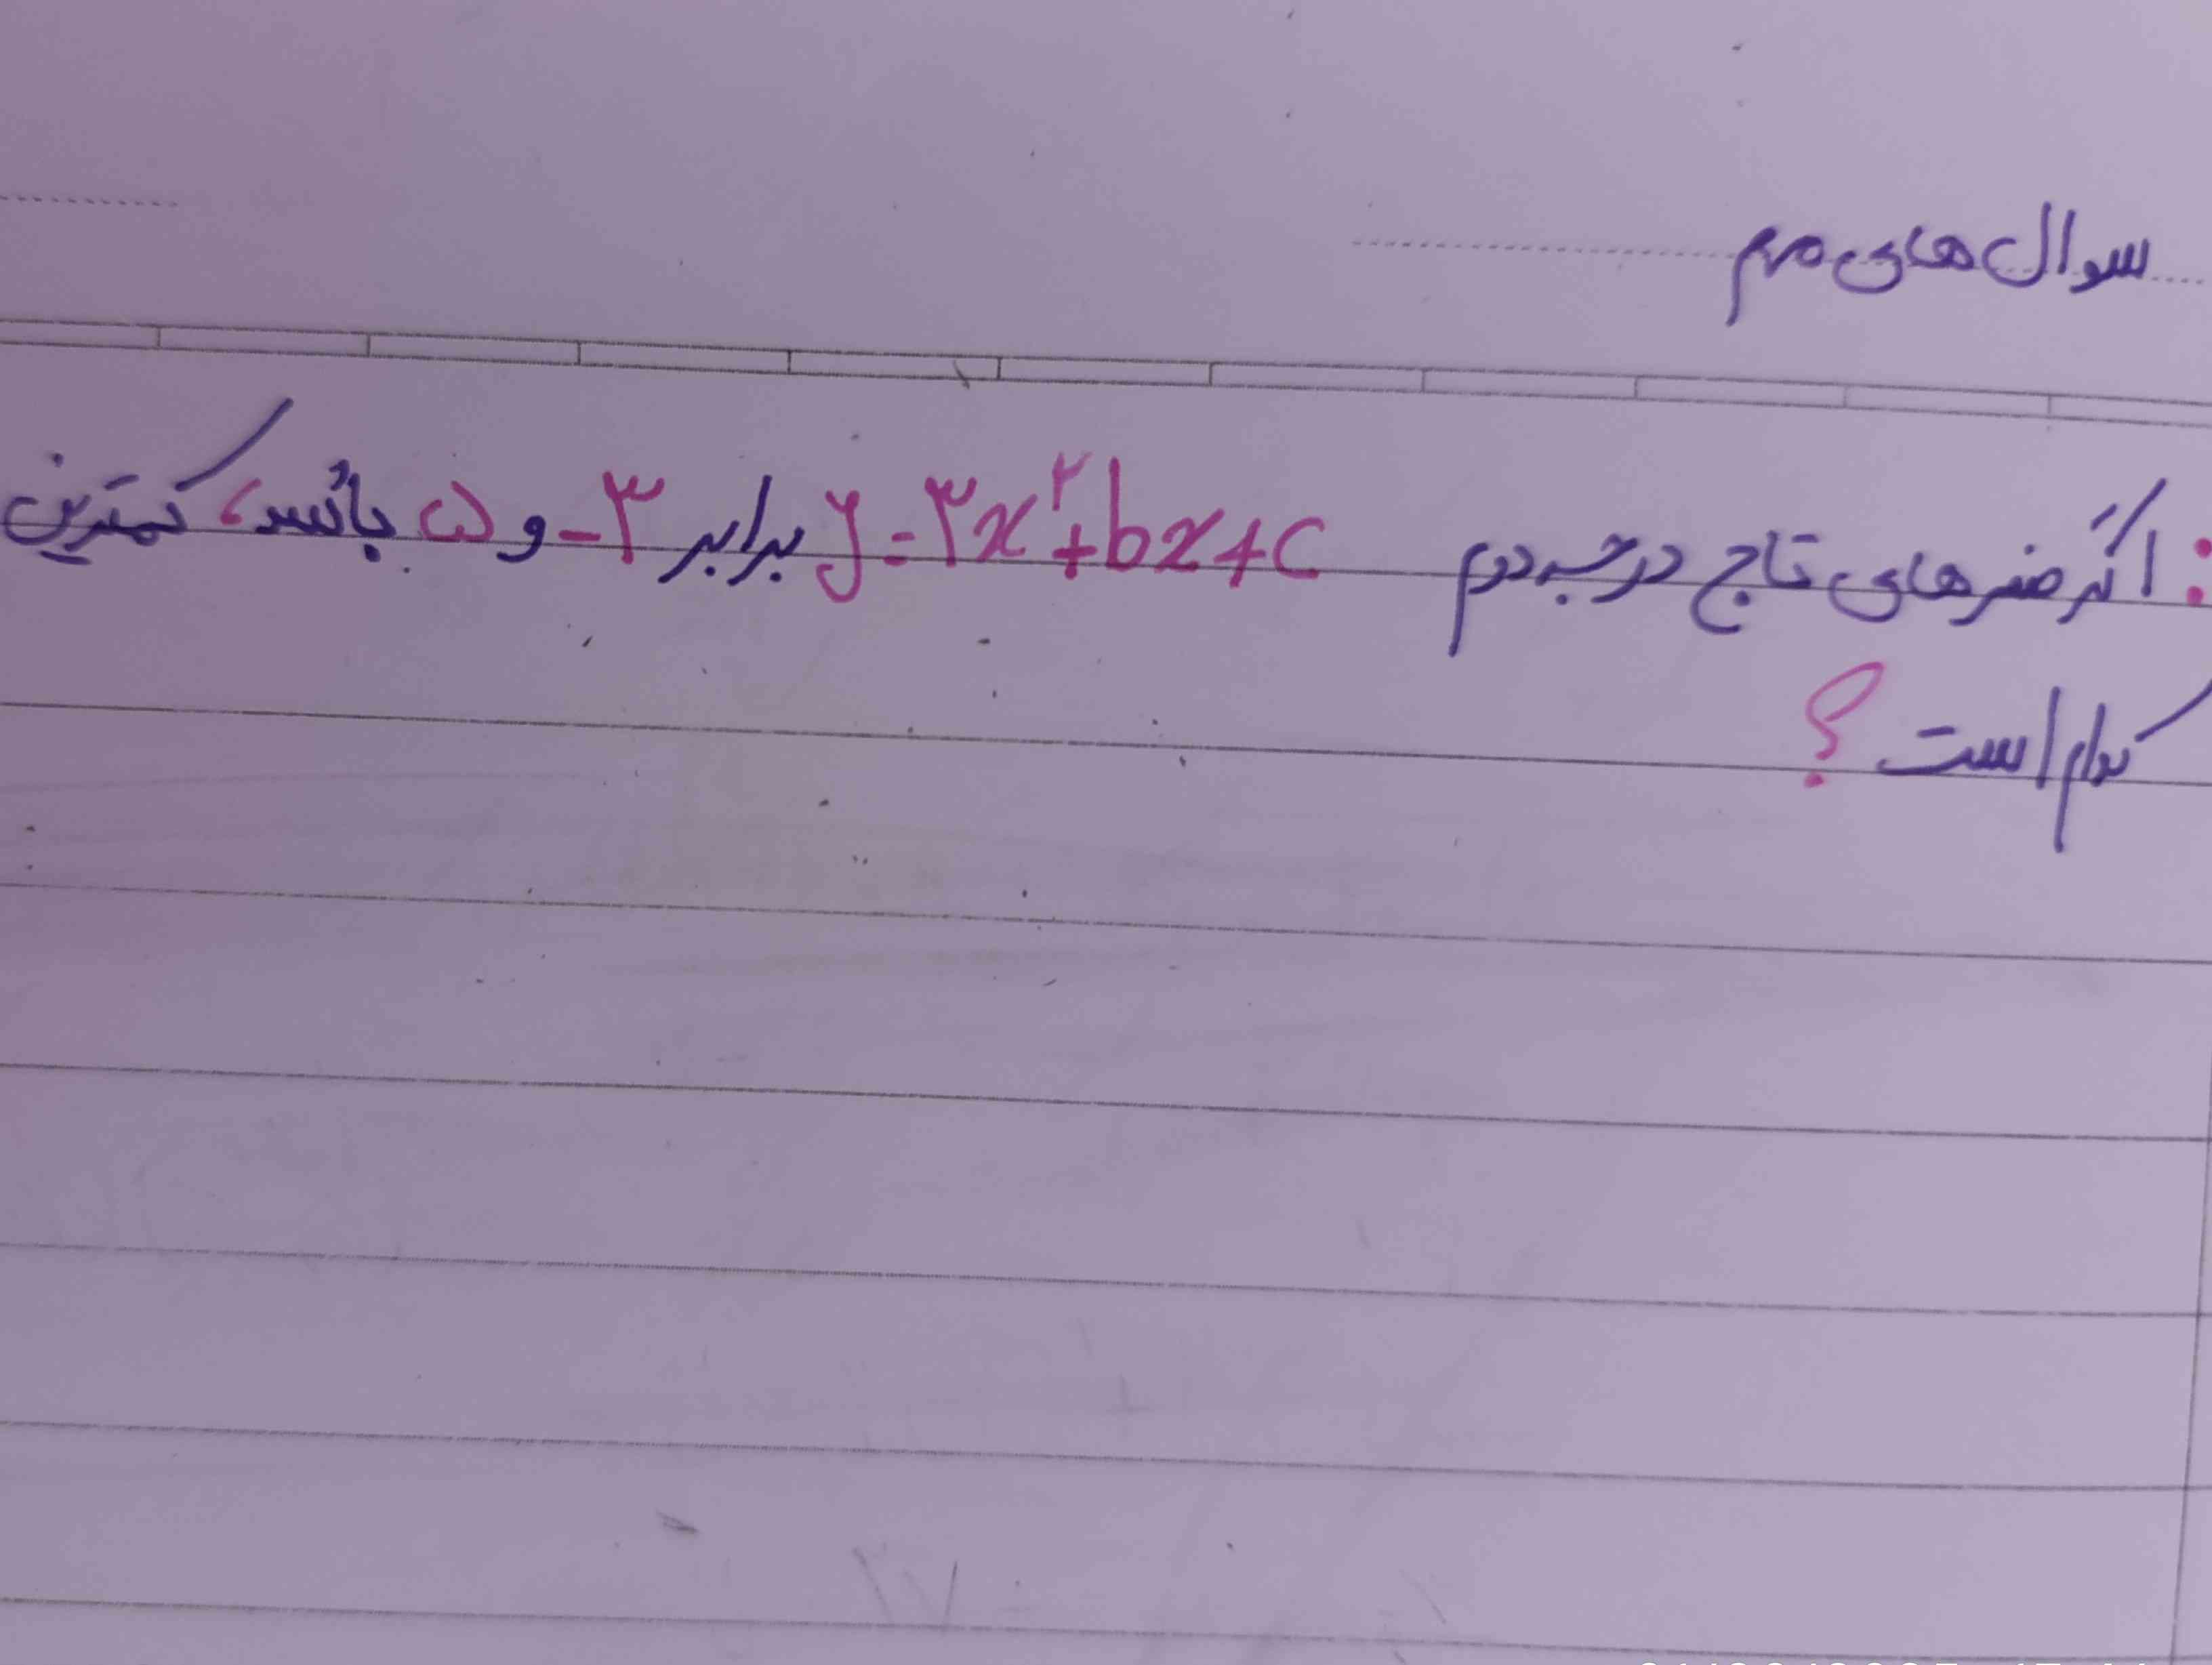 سوال های مهم
: اگر صفرهای تابع درجه دوم y=۳x²+bx+c برابر ۳- و ۵ باشد، کمترین
کدام است ؟